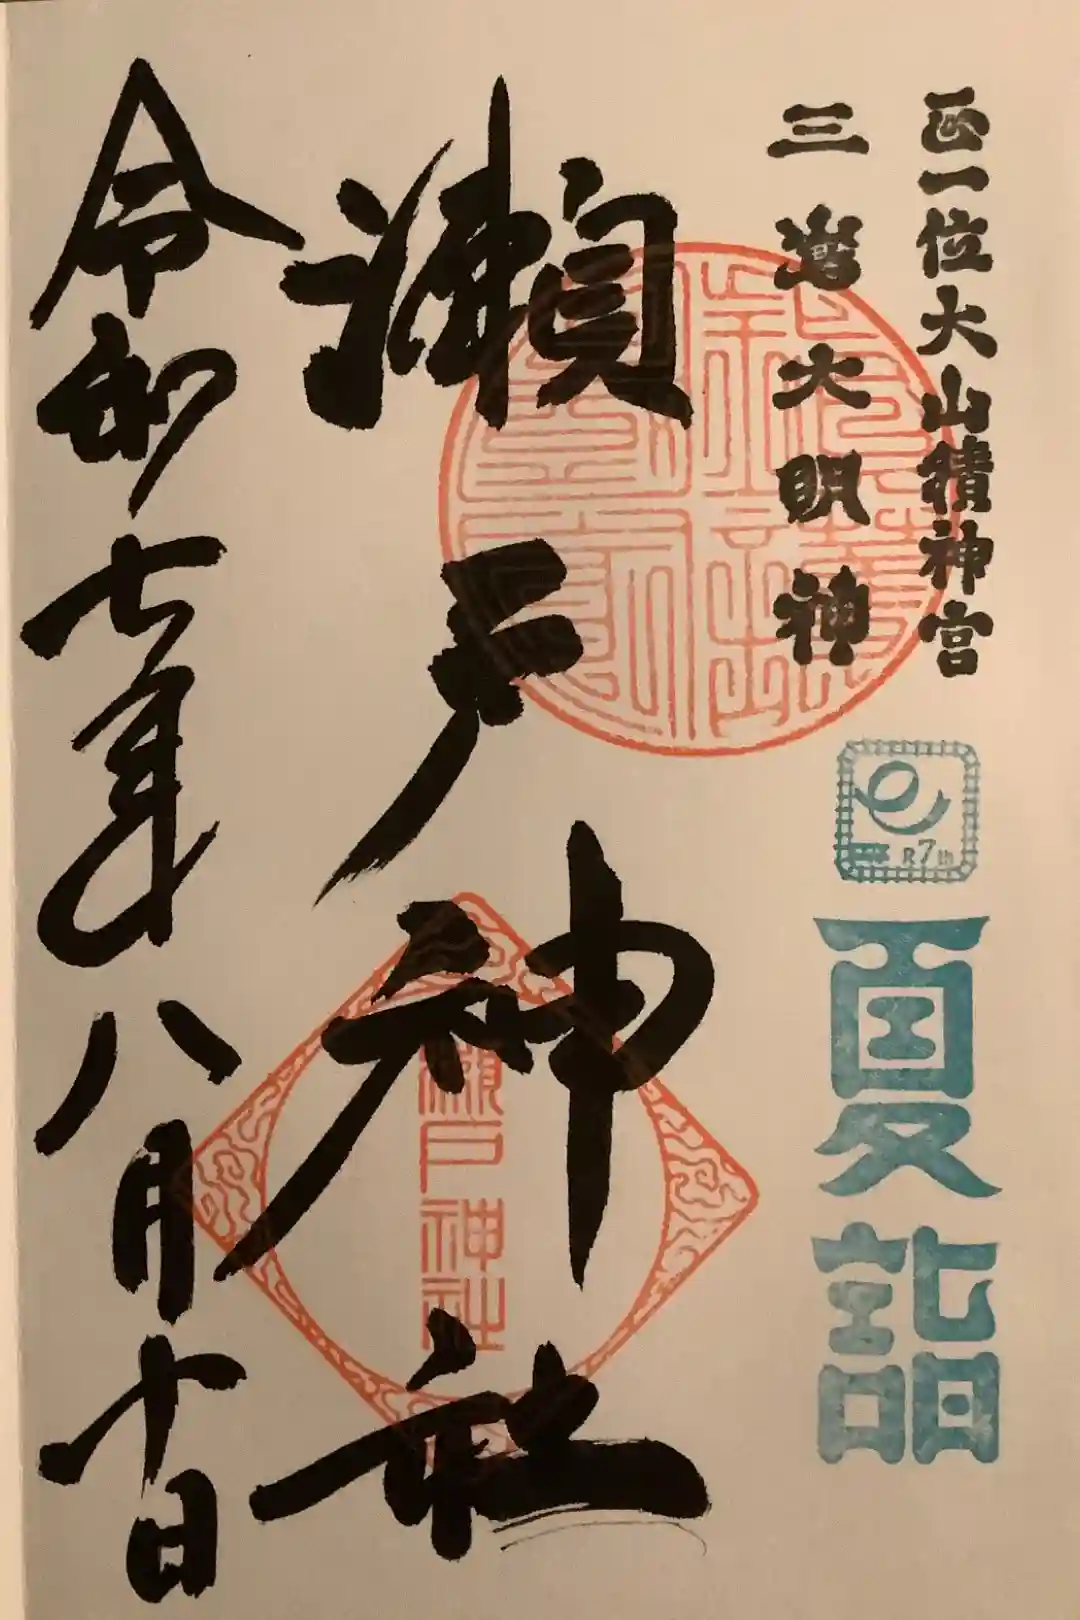 正一位大山積神宮
三嶌大明神
R7th
夏詣
瀬戸神社
瀬戸神社
令和七年八月十日